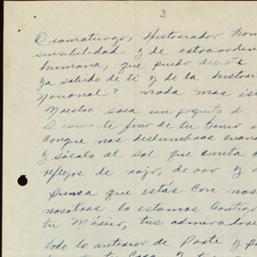 3.
Dramaturgo, Historiador hom
sensibilidad y de extraordin
humana, que puedo decirte
ya salido de ti y de la histor
Nacional? nada mas is
Maestro: saca un poquito d
Diamante fino de tu genio
conque nos deslumbras cuan
y sácalo al sol que emita
reflejos de rojo, de oro y
piensa que estás con nos
nosotras lo estamos contigo
tu México, tus admirador
todo lo anterior de Parte y p